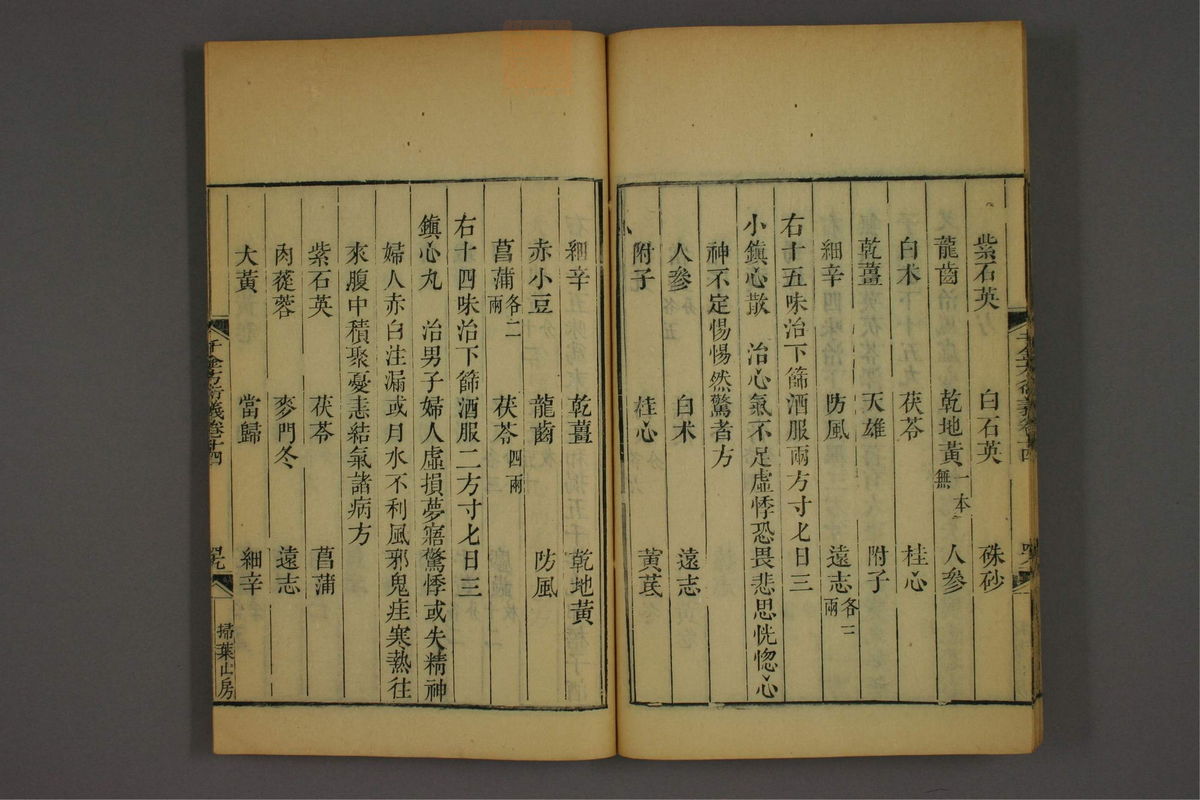 紫石英 白石英 硃砂
龍齒 乾地黃一本無 人參
白朮 茯苓 桂心
乾薑 天雄 附子
細辛 防風 遠志各二兩
右十五味治下篩酒服兩方寸匕日三
小鎮心散 治心氣不足虛悸恐畏悲思恍惚心
神不定惕惕然驚者方
人參 白朮 遠志
附子 桂心 黃芪
細辛 乾薑 乾地黃
赤小豆 龍齒 防風
菖蒲各二兩 茯苓四兩
右十四味治下篩酒服二方寸匕日三
鎮心丸 治男子婦人虛損夢寤驚悸或失精神
婦人赤白注漏或月水不利風邪鬼疰寒熱往
來腹中積聚憂恚結氣諸病方
紫石英 茯苓 菖蒲
肉蓯蓉 麥門冬 遠志
大黃 當歸 細辛
千金方衍義卷十四
掃葉山房